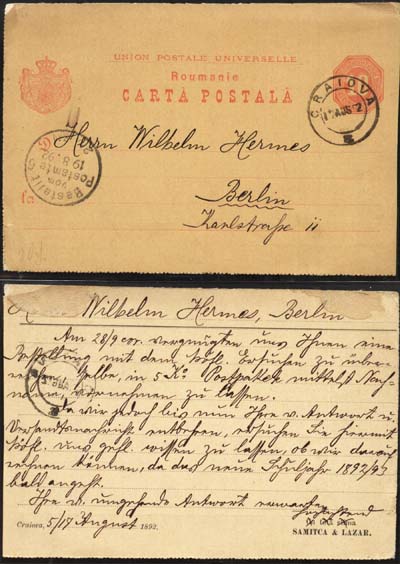 UNION POSTALE UNIVERSELLE
Roumanie
CARTĂ POSTALĂ
CRAIOVA
Herrn Wilhelm Hermes
Berlin
Karlstraße 11
Bestellt
vom
Postamte
19 8 92
Wilhelm Hermes, Berlin
Am 28/9 cor. vergnügten uns Ihnen eine
Bestellung mit dem höfl. Ersuchen zu über-
selbe, in 5 Ko. Postpaket mittelst Nach-
nahme vornehmen zu lassen.
Da wir jedoch bis nun Ihre w. Antwort u.
Versandtanzeige entbehren, ersuchen Sie hiermit
höfl. uns gefl. wissen zu lassen, ob wir darauf
rechnen können, da das neue Schuljahr 1892/93
bald angeht.
Ihre w. umgehende Antwort erwartend
Hochachtend
Craiova, 5/17 August 1892.
SAMITCA & LAZAR.